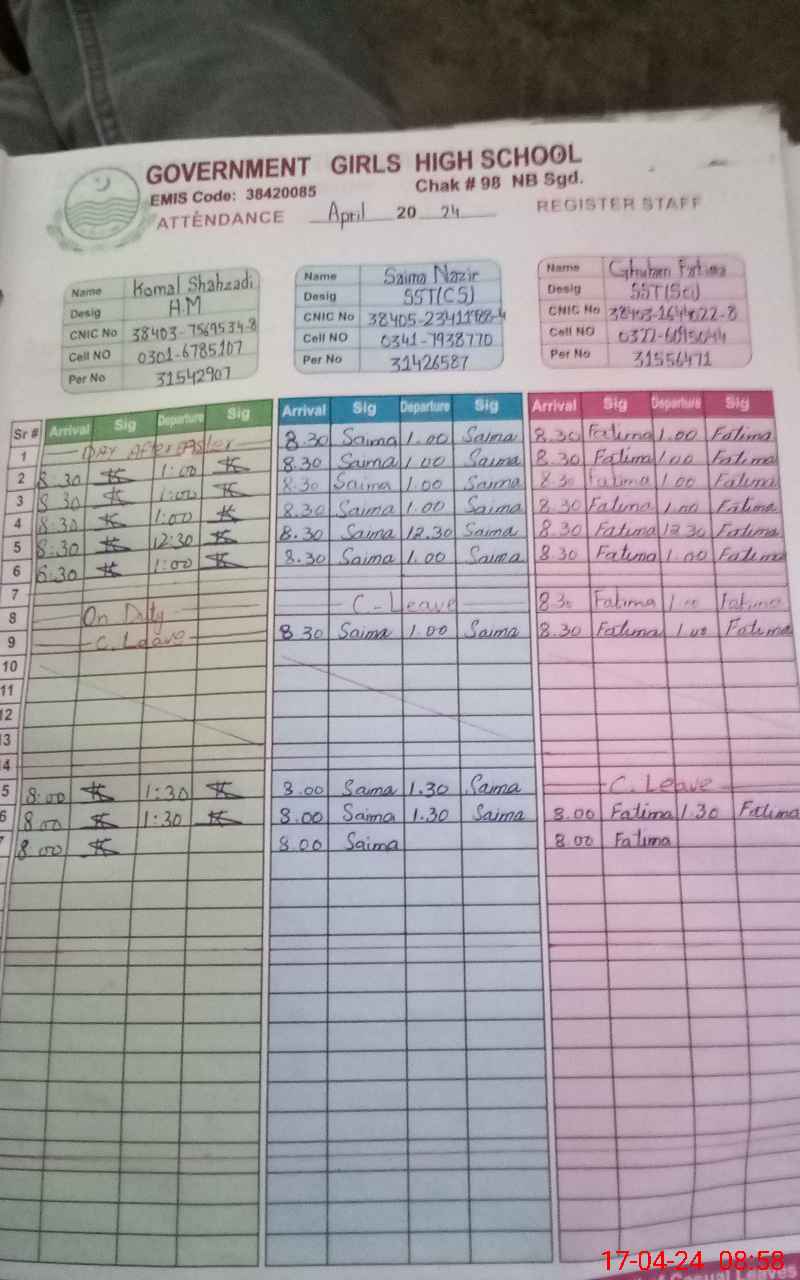 GOVERNMENT GIRLS HIGH SCHOOL
EMIS Code: 38420085 Chak # 98 NB Sgd.
ATTENDANCE April 20 24 REGISTER STAFF
Name Komal Shahzadi
Desig H.M
CNIC No 38403-7569534-8
Cell NO 0301-6785107
Per No 31542907
Name Saima Nazir
Desig SST(CS)
CNIC No
Cell NO 0341-7938770
Per No 31426587
Name Fatima
Desig SST(Sci)
CNIC No
Cell NO
Per No 31556471
Sr # Arrival Sig Departure Sig Arrival Sig Departure Sig Arrival Sig Departure Sig
1 DAY After EASter 8.30 Saima 1.00 Saima 8.30 Fatima 1.00 Fatima
2 8 30 1:00 8.30 Saima 1 00 Saima 8.30 Fatima 1.00 Fatima
3 8 30 1:00 8.30 Saima 1.00 Saima 8.30 Fatima 1.00 Fatima
4 8:30 1:00 8.30 Saima 1.00 Saima 8.30 Fatima 1.00 Fatima
5 8:30 12:30 8.30 Saima 12.30 Saima 8.30 Fatima 12 30 Fatima
6 8:30 1:00 8.30 Saima 1.00 Saima 8.30 Fatima 1.00 Fatima
7
8 On Duty C-Leave 8 30 Fatima 1 00 Fatima
9 C. Leave 8 30 Saima 1.00 Saima 8.30 Fatima 1 00 Fatima
10
11
12
3
4
5 8:00 1:30 8.00 Saima 1.30 Saima C. Leave
6 8 00 1:30 8.00 Saima 1.30 Saima 8.00 Fatima 1.30 Fatima
7 8 00 8.00 Saima 8.00 Fatima
17-04-24 08:58